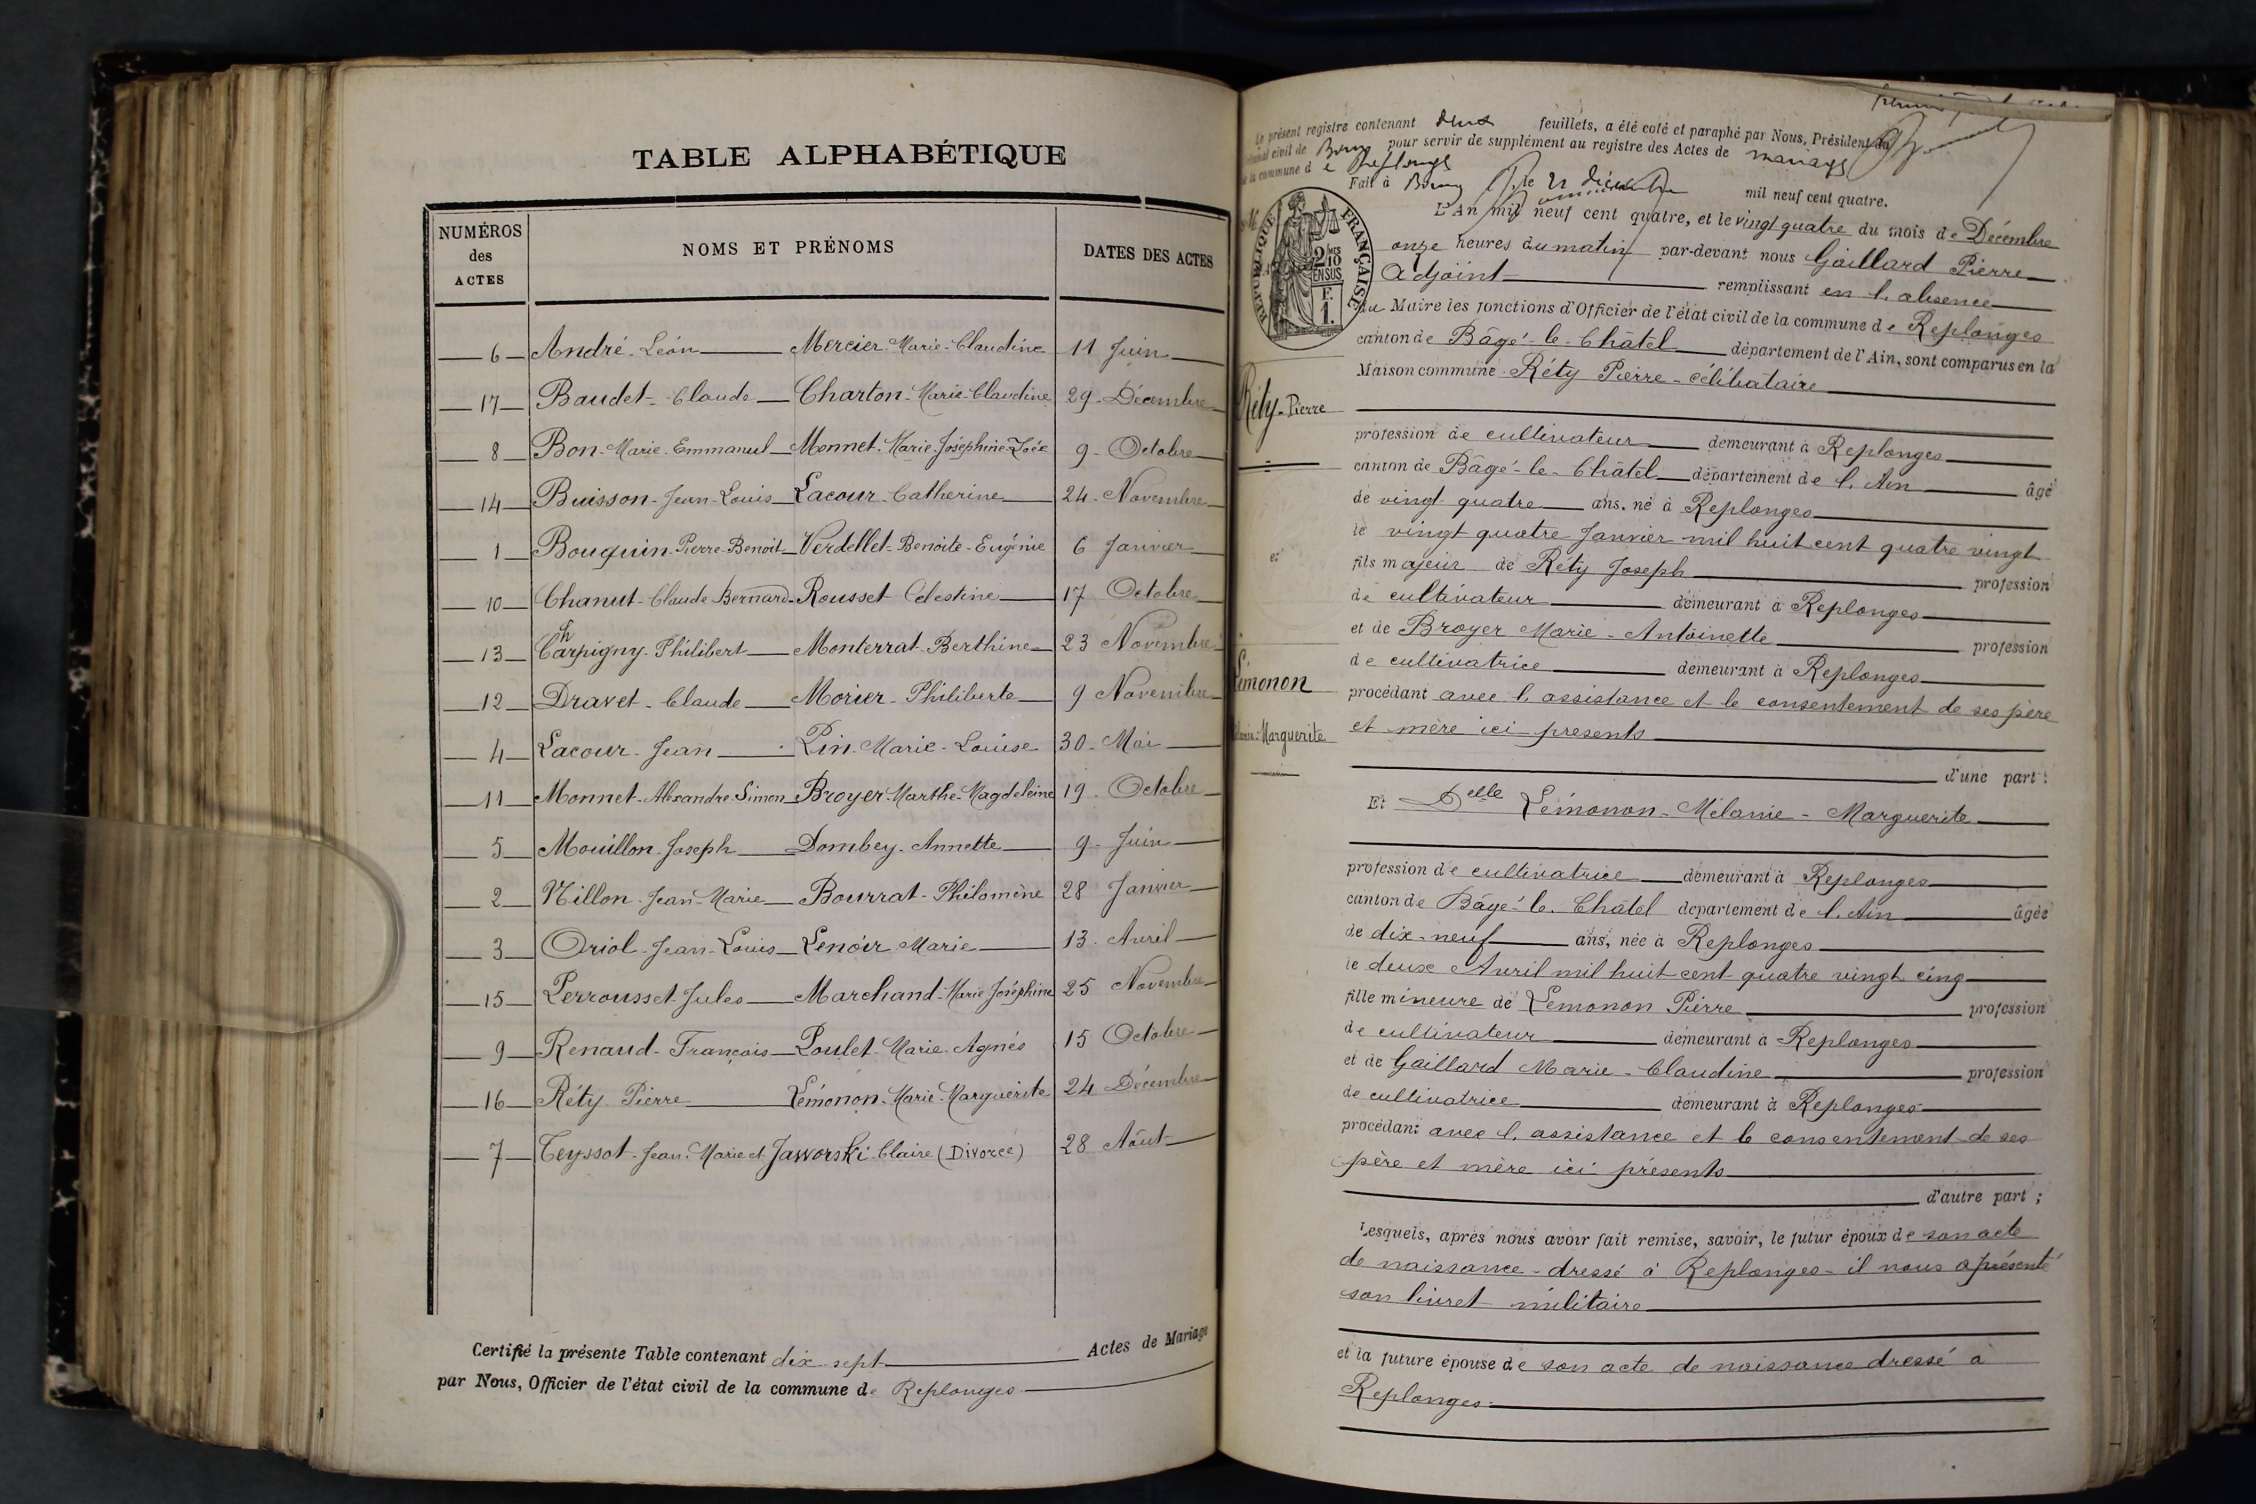 TABLE ALPHABÉTIQUE
NUMÉROS des ACTES NOMS ET PRÉNOMS DATES DES ACTES
6 André Léon Mercier Marie Claudine 11 Juin
17 Baudet Claude Charton Marie Claudine 29 Décembre
8 Bon Marie Emmanuel Monnet Marie Joséphine Zoée 9 Octobre
14 Buisson Jean Louis Lacour Catherine 24 Novembre
1 Bouquin Pierre Benoit Verdellet Benoite Eugénie 6 Janvier
10 Chanut Claude Bernard Rousset Celestine 17 Octobre
13 Charpigny Philibert Monterrat Berthine 23 Novembre
12 Dravet Claude Morier Philiberte 9 Novembre
4 Lacour Jean Pin Marie Louise 30 Mai
11 Monnet Alexandre Simon Broyer Marthe Magdeleine 19 Octobre
5 Mouillon Joseph Dombey Annette 9 Juin
2 Nillon Jean Marie Bourrat Philomène 28 Janvier
3 Oriol Jean Louis Lenoir Marie 13 Avril
15 Perrousset Jules Marchand Marie Joséphine 25 Novembre
9 Renaud François Poulet Marie Agnés 15 Octobre
16 Réty Pierre Lémonon Marie Marguerite 24 Décembre
7 Teyssot Jean Marie et Jaworski Claire (Divorce) 28 Août
Certifié la présente Table contenant dix sept Actes de Mariage
par Nous, Officier de l'état civil de la commune de Replonges
Le présent registre contenant deux feuillets, a été coté et paraphé par Nous, Président du
tribunal civil de Bourg pour servir de supplément au registre des Actes de mariages
de la commune de Replonges
Fait à Bourg le 22 décembre mil neuf cent quatre.
RÉPUBLIQUE FRANÇAISE
2/10 EN SUS
F. 1.
L'An mil neuf cent quatre, et le vingt quatre du mois de Décembre
onze heures du matin par-devant nous Gaillard Pierre
Adjoint remplissant en l'absence
du Maire les fonctions d'Officier de l'état civil de la commune de Replonges
canton de Bâgé-le-Châtel département de l'Ain, sont comparus en la
Maison commune Réty Pierre célibataire
Réty Pierre
profession de cultivateur demeurant à Replonges
canton de Bâgé-le-Châtel département de l'Ain âgé
de vingt quatre ans, né à Replonges
le vingt quatre Janvier mil huit cent quatre vingt
et
fils majeur de Réty Joseph profession
de cultivateur demeurant à Replonges
et de Broyer Marie-Antoinette profession
de cultivatrice demeurant à Replonges
Lémonon
procédant avec l'assistance et le consentement de ses père
et mère ici présents
Marguerite
d'une part:
Et Delle Lémonon-Mélanie-Marguerite
profession de cultivatrice demeurant à Replonges
canton de Bâgé-le-Châtel département de l'Ain âgée
de dix-neuf ans, née à Replonges
le deux Avril mil huit cent quatre vingt cinq
fille mineure de Lemonon Pierre profession
de cultivateur demeurant à Replonges
et de Gaillard Marie-Claudine profession
de cultivatrice demeurant à Replonges
procédant avec l'assistance et le consentement de ses
père et mère ici présents
d'autre part;
Lesquels, après nous avoir fait remise, savoir, le futur époux de son acte
de naissance dressé à Replonges il nous a présenté
son livret militaire
et la future épouse de son acte de naissance dressé à
Replonges